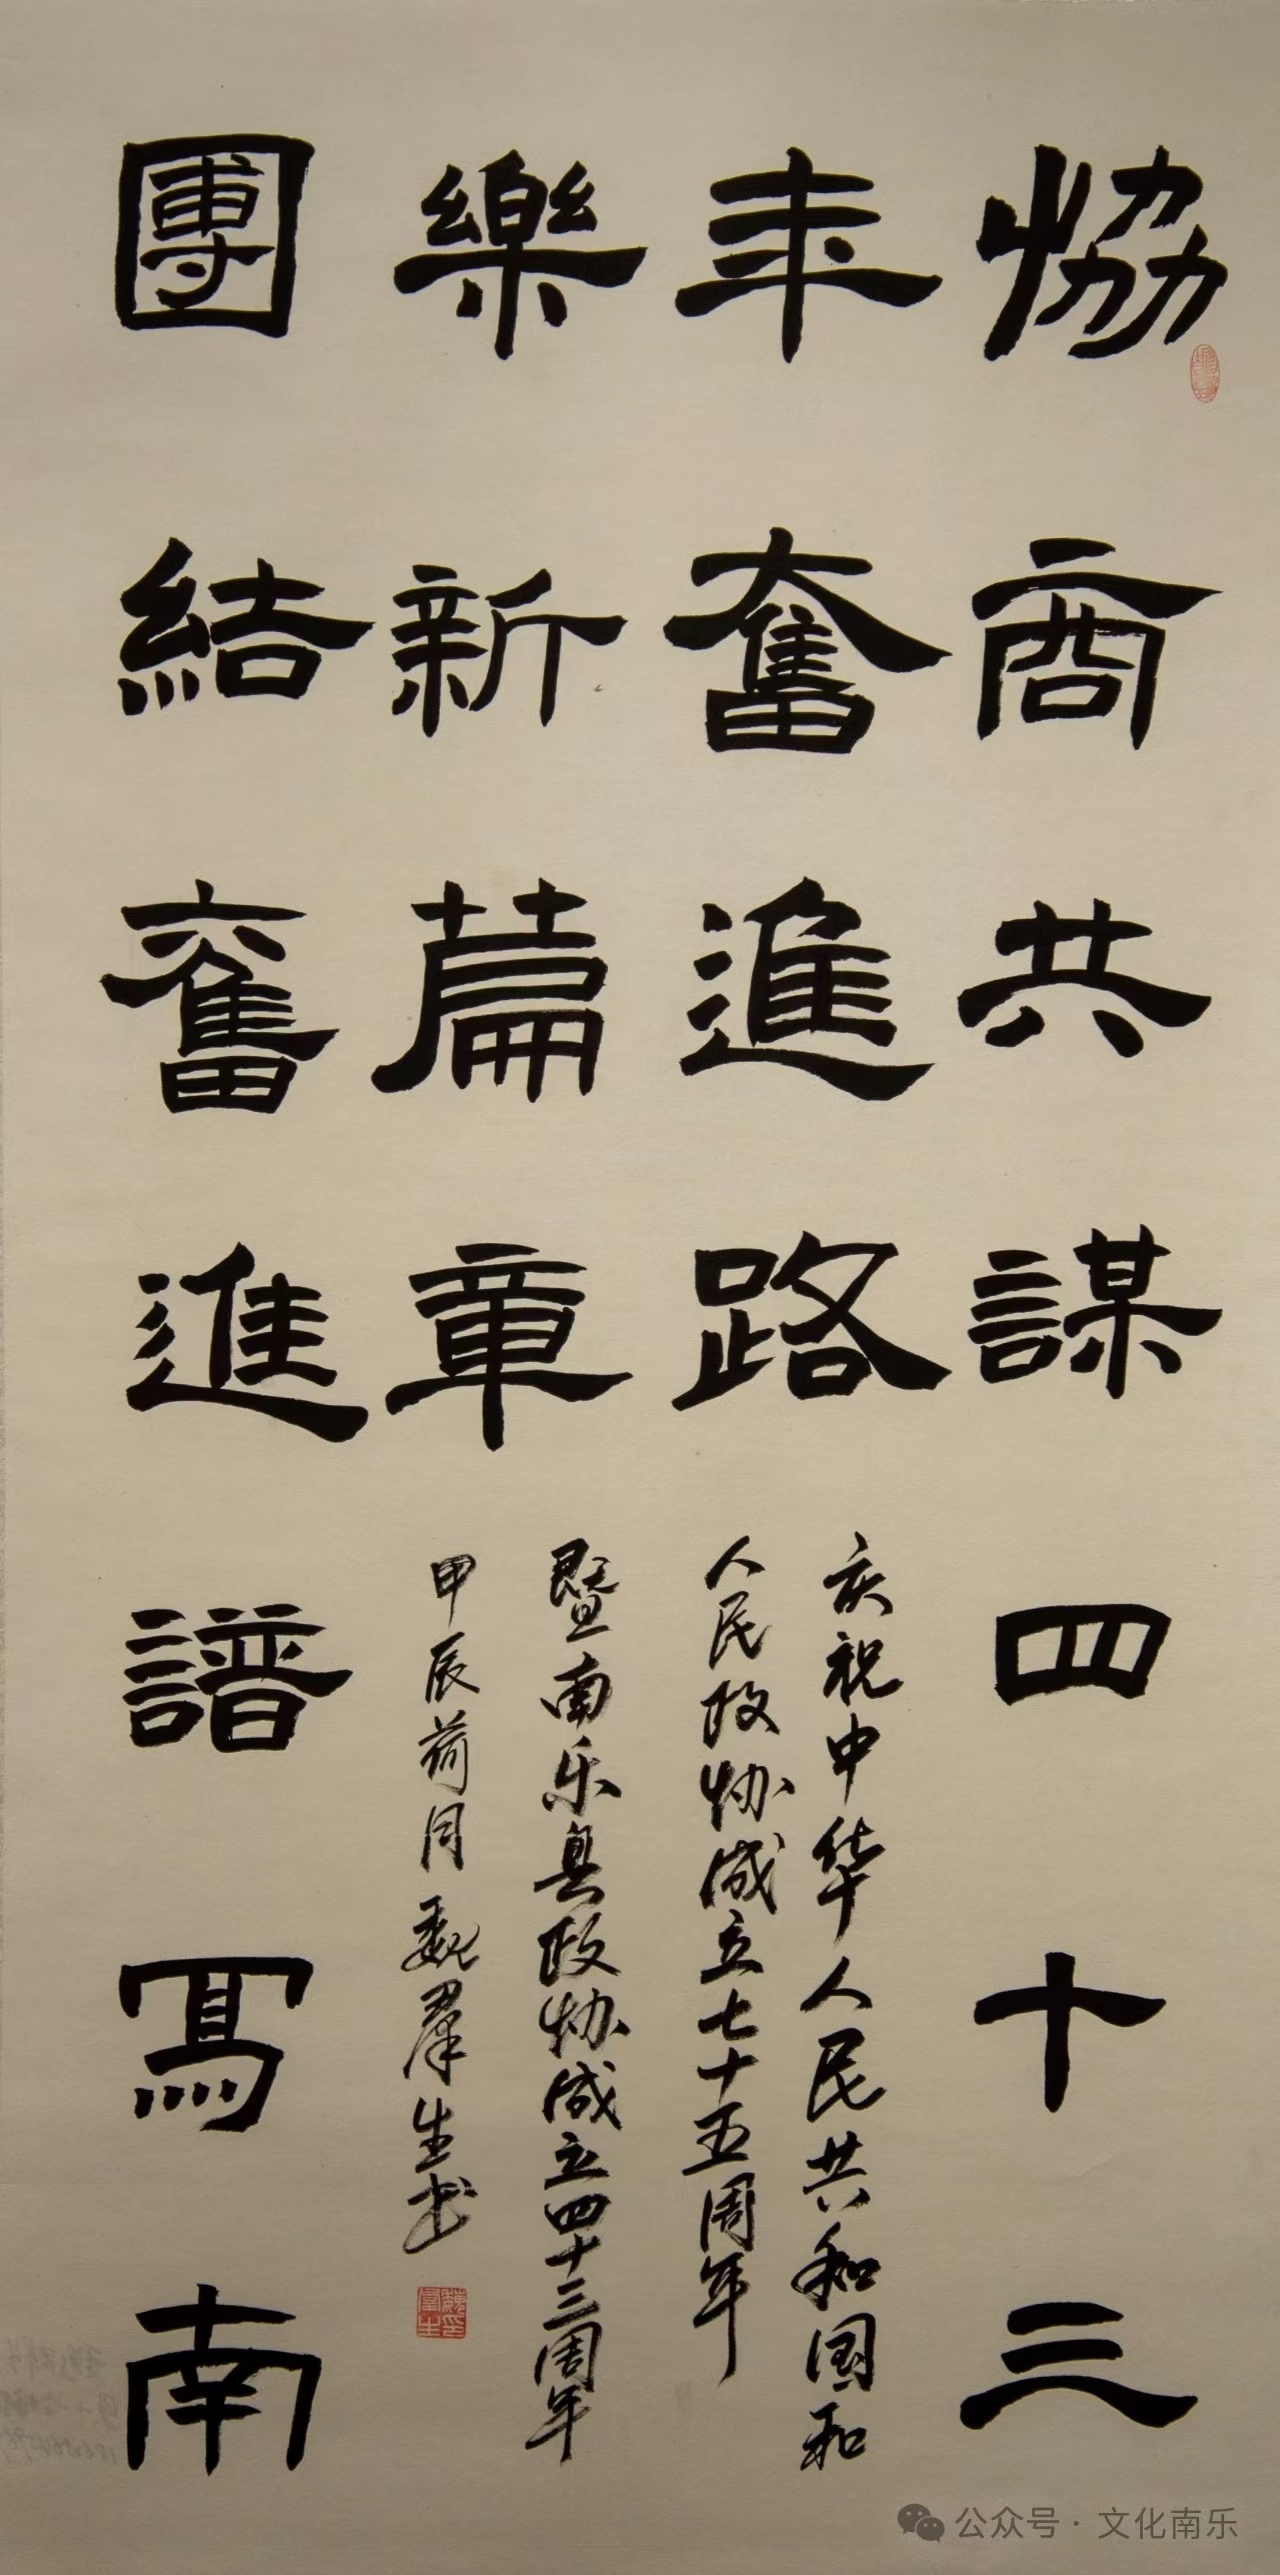 恊商共謀四十三
年奮進路
團結奮進譜寫南
樂新篇章
庆祝中华人民共和国和
人民政协成立七十五周年
暨南乐县政协成立四十三周年
甲辰荷月魏羣生书
公众号·文化南乐